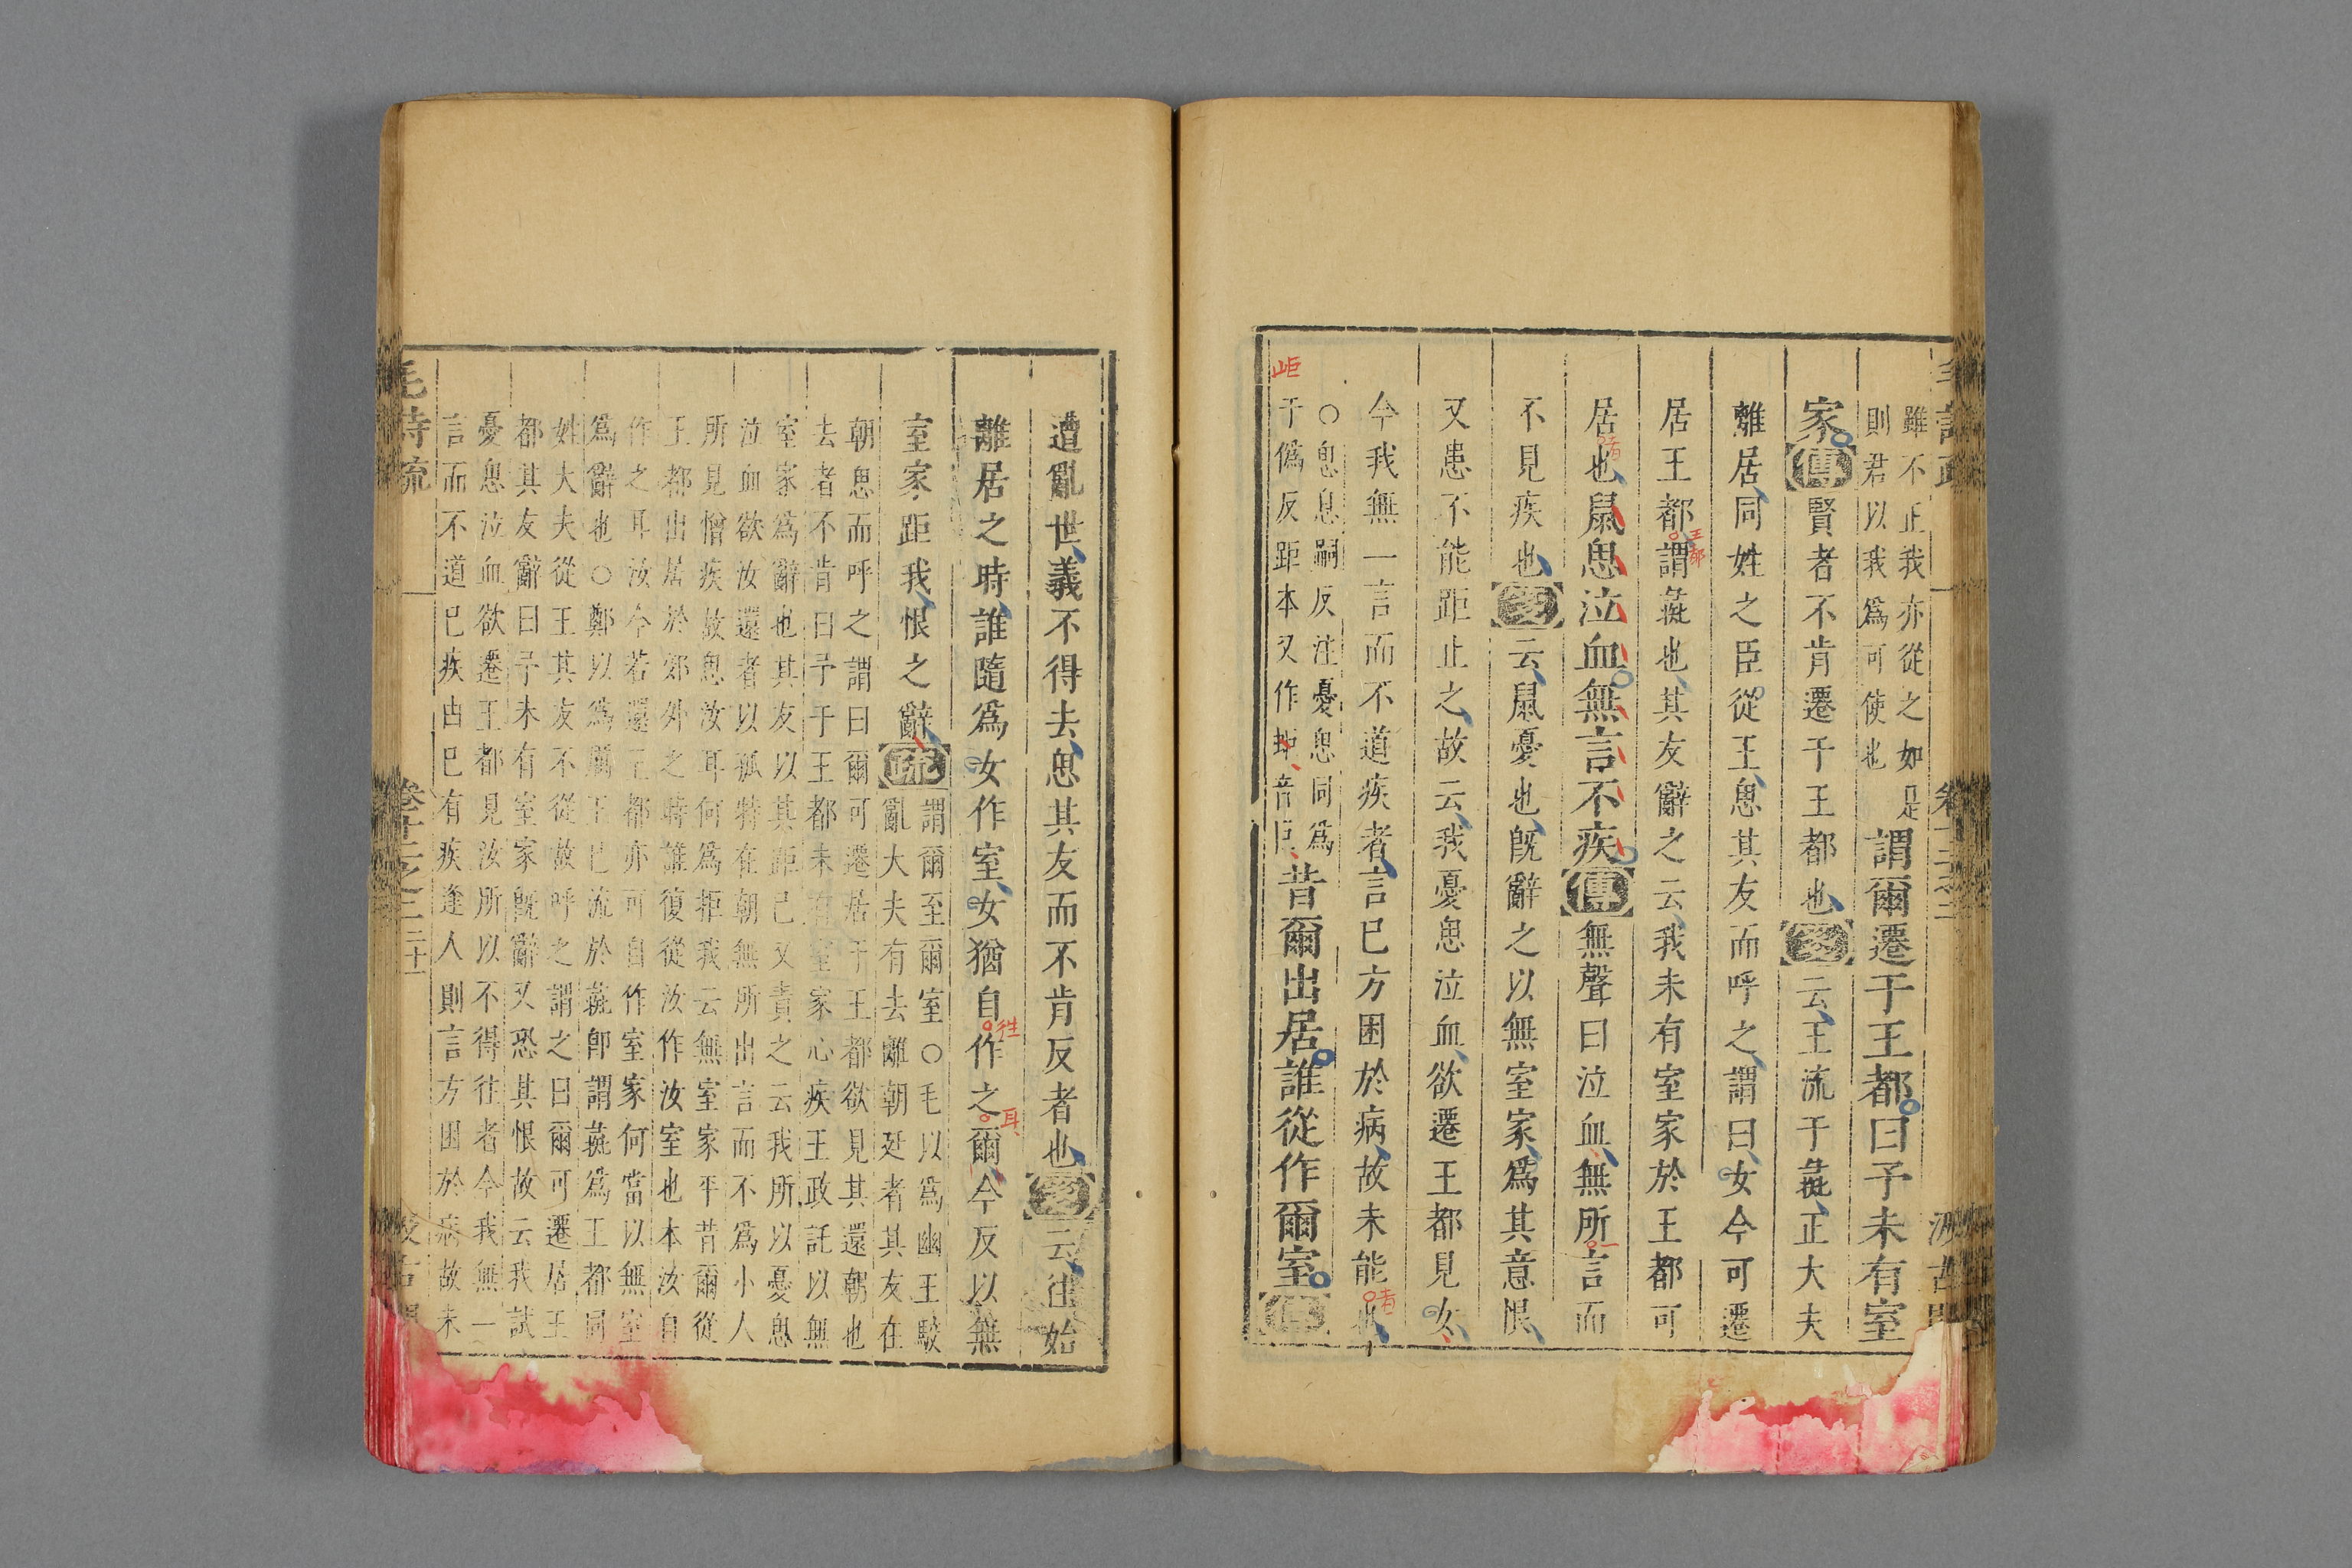 雖不正我亦從之如是
則君以我爲可使也
謂爾遷于王都曰予未有室
家傳賢者不肯遷于王都也箋云王流于彘正大夫
離居同姓之臣從王思其友而呼之謂曰女今可遷
居王都謂彘也其友辭之云我未有室家於王都可
王都
居也鼠思泣血無言不疾傳無聲曰泣血無所言而
者
不見疾也箋云鼠憂也旣辭之以無室家爲其意恨
又患不能距止之故云我憂思泣血欲遷王都見女
今我無一言而不道疾者言已方困於病故未能也
者
○思息嗣反注憂思同爲
于僞反距本又作拒音巨
岠
昔爾出居誰從作爾室傳
遭亂世義不得去思其友而不肯反者也箋云往始
離居之時誰隨爲女作室女猶自作之爾今反以無
往
耳
室家距我恨之辭疏
謂爾至爾室○毛以爲幽王駮
亂大夫有去離朝廷者其友在
朝思而呼之謂曰爾可遷居于王都欲見其還朝也
去者不肯曰予于王都未有室家心疾王政託以無
室家爲辭也其友以其距已又責之云我所以憂思
泣血欲汝還者以孤特在朝無所出言而不爲小人
所見憎疾故思汝耳何爲拒我云無室家乎昔爾從
王都出居於郊外之時誰復從汝作汝室也本汝自
作之耳汝今若還王都亦可自作室家何當以無室
爲辭也○鄭以爲厲王已流於彘卽謂彘爲王都同
姓大夫從王其友不從故呼之謂之曰爾可遷居王
都其友辭曰予未有室家旣辭又恐其恨故云我誠
憂思泣血欲遷王都見汝所以不得往者今我無一
言而不道已疾由已有疾逢人則言方困於病故未
毛詩疏
卷十二之二
二十一